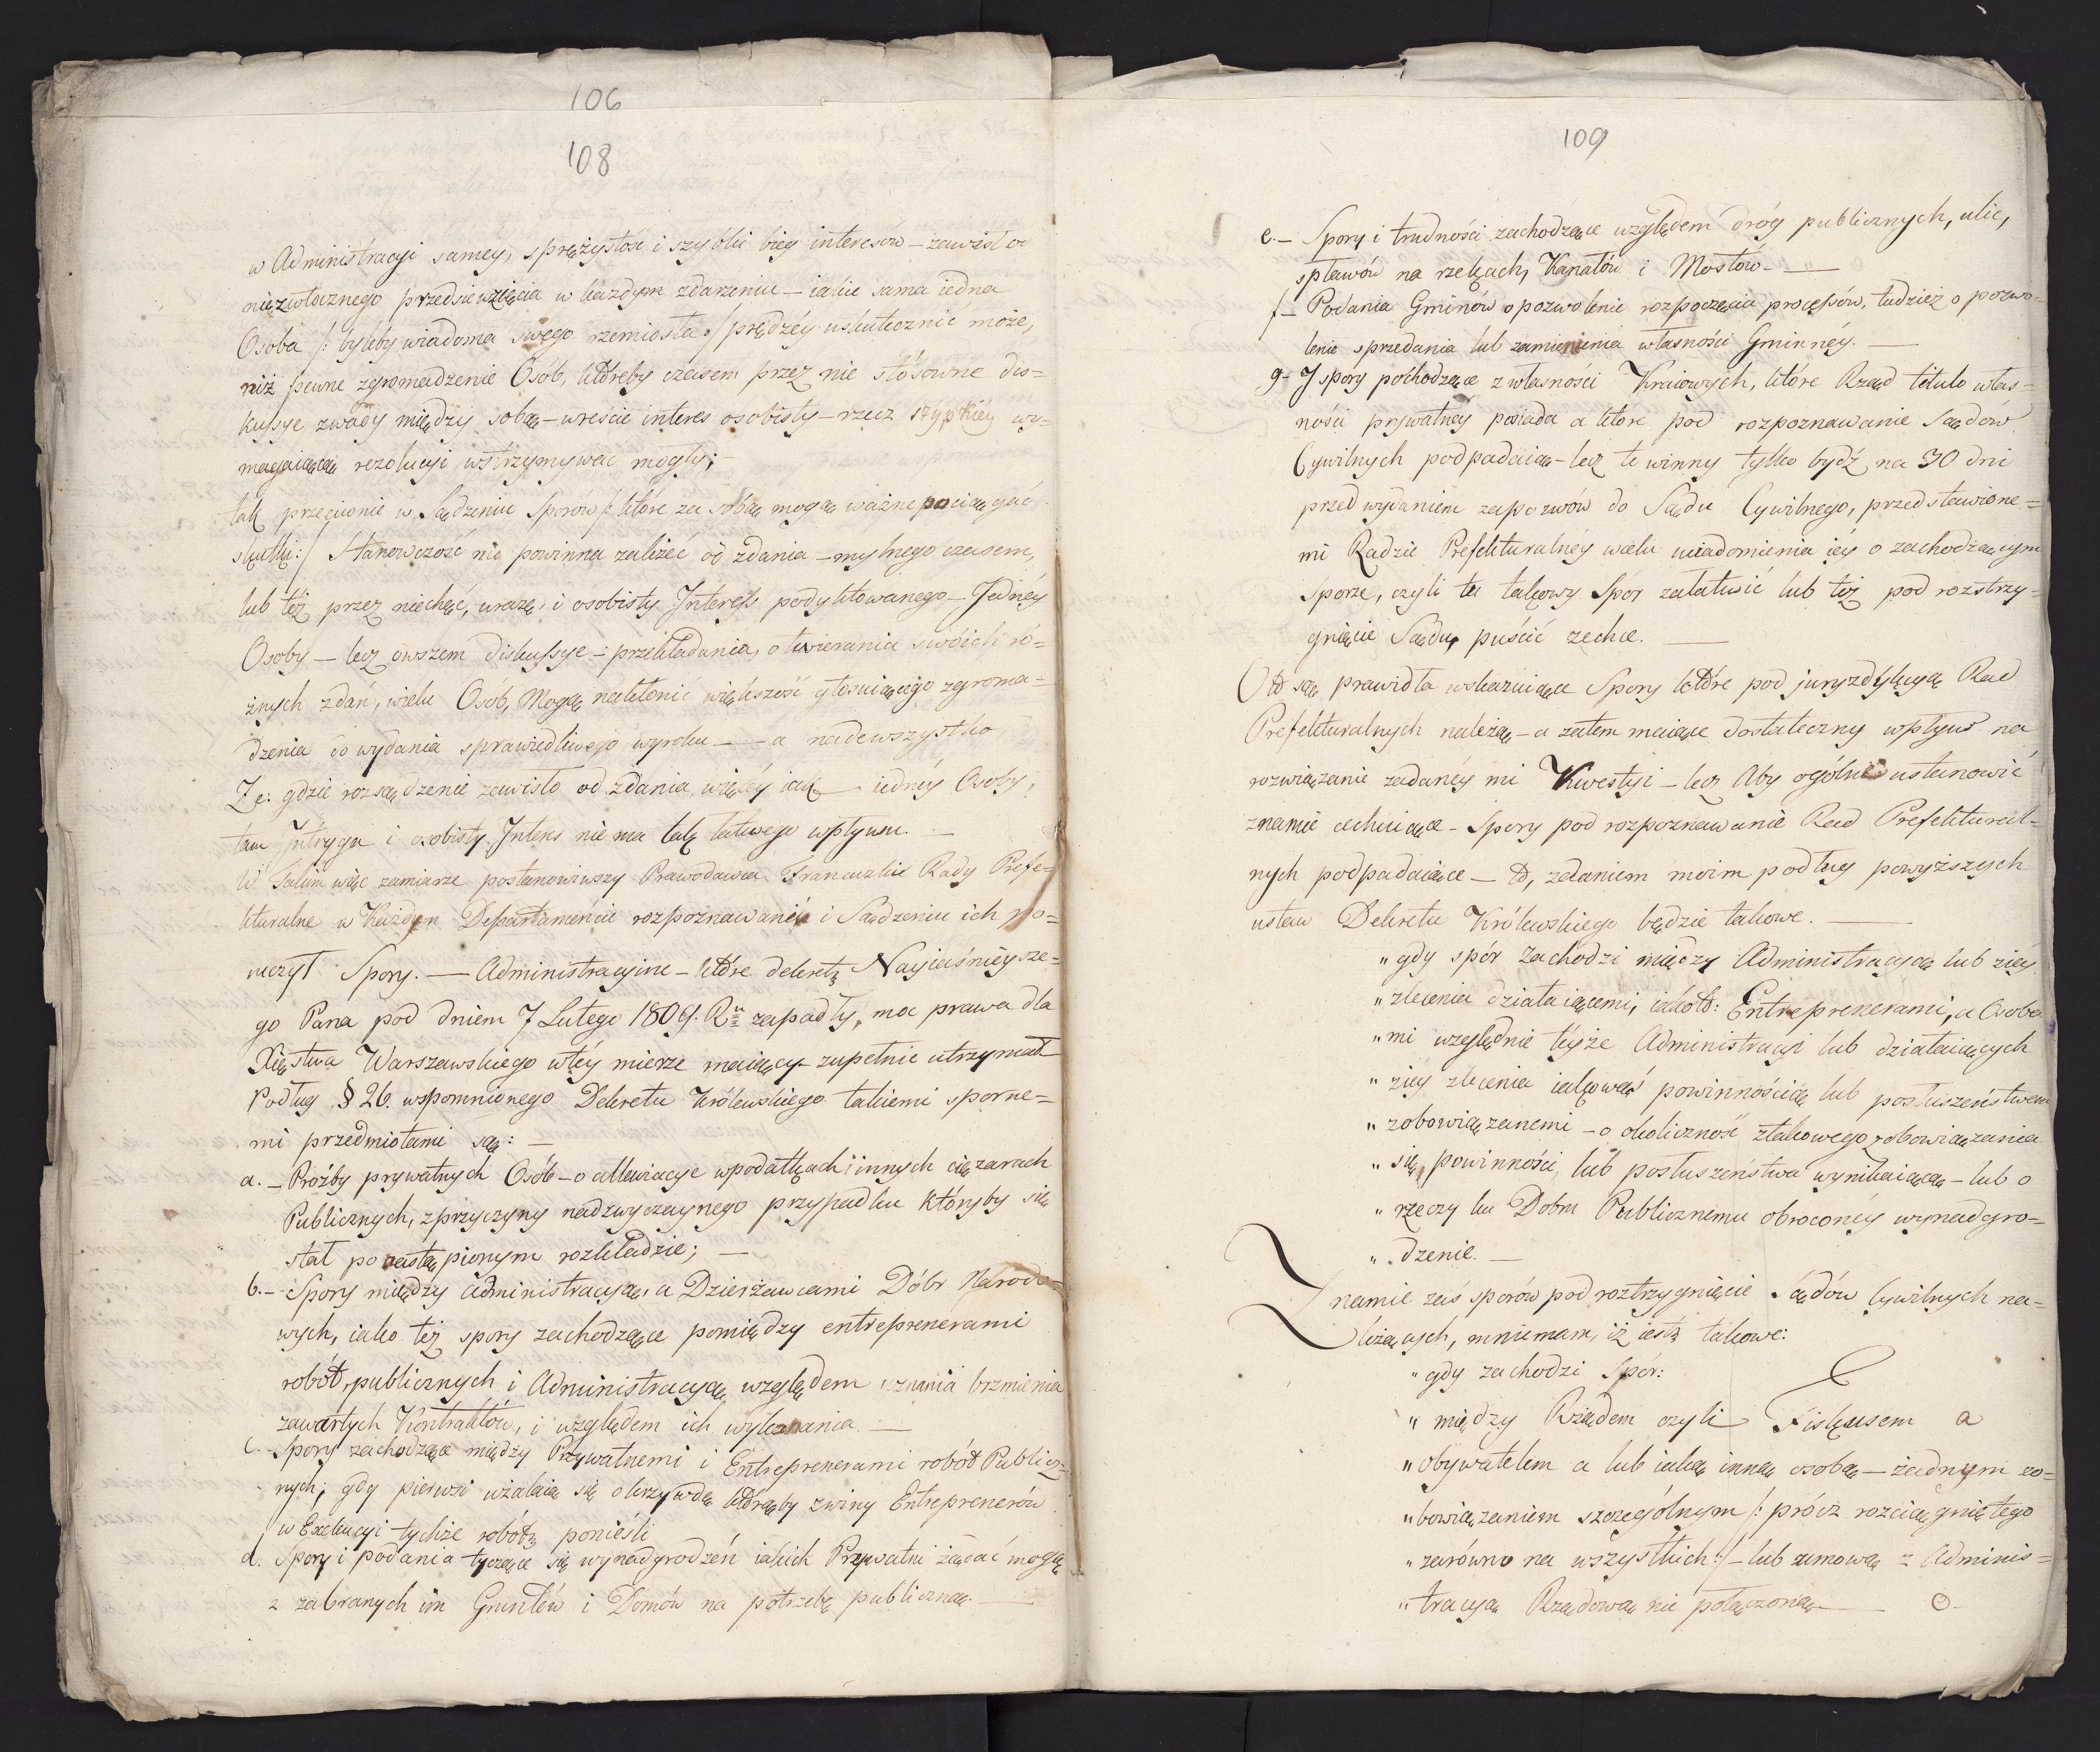 106
108
w Administracyi saméy, sprężystość i szybki bieg interesów – zawisł od
niezwłocznego przedsięwzięcia w każdym zdarzeniu – iakie sama iedna
Osoba /: byleby wiadoma swego rzemiosła :/ prędzéy uskutecznić może,
niż pewne zgromadzenie Osób, któreby czasem przez nie stósowne dis=
kussye zwady między sobą – wreście interes osobisty – rzecz szypkiey wy=
magaiącą rezolucyi wstrzymywać mogły; –
tak przeciwnie w Sądzeniu Sporów /: które za sobą mogą ważne pociągać
skutki :/ Stanowczość nie powinna zależeć od zdania – mylnego czasem,
lub też przez niechęć, urazę, i osobisty Interess podyktowanego – Jednéy
Osoby – lecz owszem diskussye – przekładania, otwierania swoich ró=
żnych zdań, wielu Osób, Mogą nakłonić większość głosuiącego zgroma=
dzenia do wydania sprawiedliwego wyroku — a nadewszystko
Że: gdzie rozsądzenie zawisło od zdania więcéy iak iednéy Osoby,
tam Intryga i osobisty Interes nie ma tak łatwego wpływu. –
W Takim więc zamiarze postanowiwszy Prawodawca Francuzkie Rady Prefe=
kturalne w Każdym Departamencie rozpoznawaniu i Sądzeniu ich po=
ruczył Spory. — Administracyine – które dekretē Nayiaśnieysze=
go Pana pod dniem 7 Lutego 1809. Ru zapadły, moc prawa dla
Xięstwa Warszawskiego w téy mierze maiący – zupełnie utrzymał
Podług § 26. wspomnionego Dekretu Królewskiego takiemi sporne=
mi przedmiotami są: –
a. – Próźby prywatnych Osób – o allewiacye w podatkach i innych ciężarach
Publicznych, z przyczyny nadzwyczaynego przypadku któryby się
stał po nastąpionym rozkładzie; –
b. – Spory między administracyą, a Dzierżawcami Dóbr Narodo=
wych, iako też spory zachodzące pomiędzy entreprenerami
robót publicznych i Administracyą względem uznania brzmienia
zawartych Kontraktów, i względem ich wykonania —
c. – Spory zachodzące między Prywatnemi i Entreprenerami robót Publicz=
nych, gdy pierwsi użalaią się o krzywdę którąby z winy Entreprenerów
w Exekucyi tychże robót ponieśli
d. Spory i podania tyczące się wynadgrodzeń iakich Prywatni żądać mogą
z zabranych im Gruntów i Domów na potrzebę publiczną. —
109
e. – Spory i trudności zachodzące względem dróg publicznych, ulic,
spławów na rzekach, Kanałów i Mostów – —
f – Podania Gminów o pozwolenie rozpoczęcia processów, tudzież o pozwo=
lenie sprzedania lub zamienienia własności Gminnéy. —
g – J spory pochodzące z własności Kraiowych, które Rząd titulo włas=
ności prywatnéy posiada a które pod rozpoznawanie Sądów
Cywilnych podpadaią – lecz te winny tylko bydź na 30 dni
przed wydaniem zapozwów do Sądu Cywilnego, przedstawione=
mi Radzie Prefekturalnéy w celu uiadomienia iéy o zachodzącym
Sporze, czyli ta takowy Spór załatwić lub też pod rozstrzy=
gnięcie Sądu, puścić zechce. —
Oto są prawidła wskazuiące Spory które pod juryzdykcyą Rad
Prefekturalnych należą – a zatem maiące dostateczny wpływ na
rozwiązanie zadanéy mi Kwestyi – lecz Aby ogólnie ustanowić
znamie cechuiące – Spory pod rozpoznawanie Rad Prefektural=
nych podpadaiące — to, zdaniem moim podług powyższych
ustaw Dekretu Królewskiego będzie takowe. —
" gdy spór zachodzi między Administracyą lub z iéy
" zlecenia działaiącemi, iakoto: Entreprenerami, a Osoba
" mi względnie téyże Administracyi lub działaiących
" z iéy zlecenia iakowąś powinnością lub posłuszeństwem
" zobowiązanemi – o okoliczność z takowego zobowiązania
" się, powinności, lub posłuszeństwa wynikaiącą – lub o
" rzeczy ku Dobru Publicznemu obroconéy wynadgro=
" dzenie. —
Znamie zaś sporów pod roztrzygnięcie Sądów Cywilnych na=
leżących, mniemam, iż iestē takowe:
" gdy zachodzi Spór:
" między Rządem czyli Fiskusem a
" obywatelem a lub iaką inną osobą — żadnym zo=
" bowiązaniem szczególnym /: prócz rozciągniętego
" zarówno na wszystkich :/ – lub umową z Adminis=
" tracyą Rządową nie połączoną —